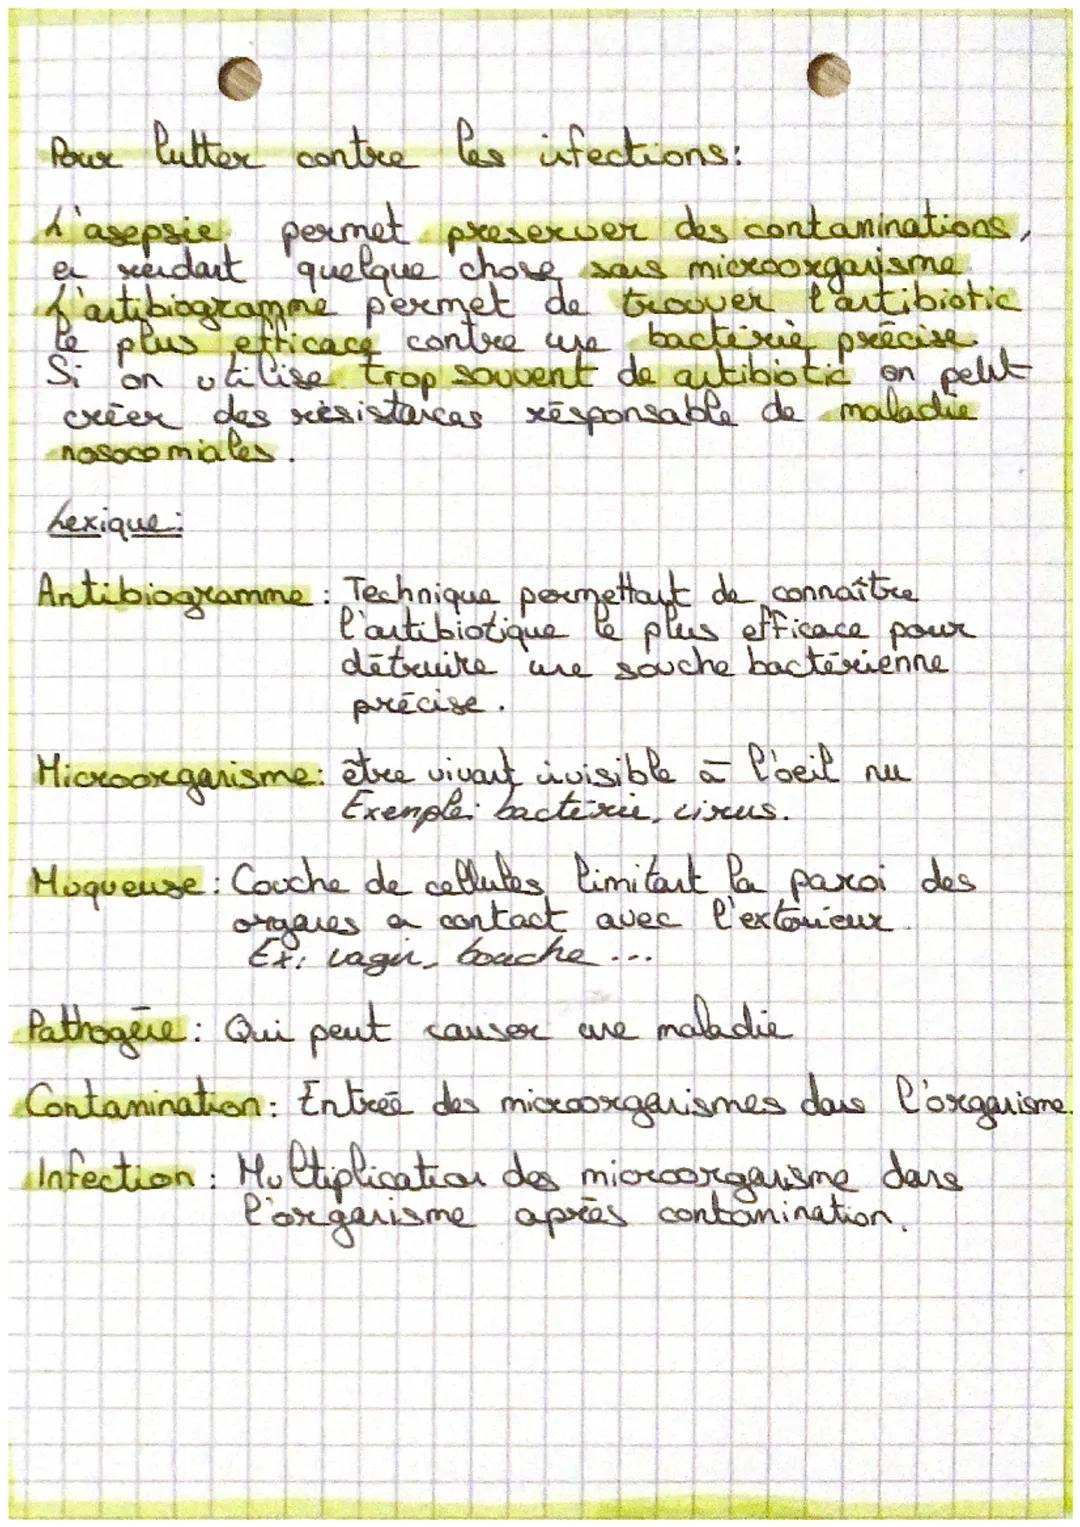 Pour lutter contre les infections:
L'asepsie permet preserver des contaminations,
en rendant quelque chose sans microorganisme.
L'antibiogramme permet de trouver l'antibiotic
le plus efficace contre une bactérie précise.
Si on utilise trop souvent de antibiotic on peut
créer des résistances résponsable de maladie
nosocomiales.
Lexique:
Antibiogramme: Technique permettant de connaître
l'antibiotique le plus efficace pour
détruire une souche bactérienne
précise.
Microorganisme: être vivant invisible à l'oeil nu
Exemple: bactérie, virus.
Muqueuse: Couche de cellules limitant la paroi des
organes en contact avec l'extérieur.
Ex: vagin, bouche...
Pathogène: Qui peut causer une maladie
Contamination: Entrée des microorganismes dans l'organisme.
Infection: Multiplication des microorganisme dans
l'organisme après contamination.